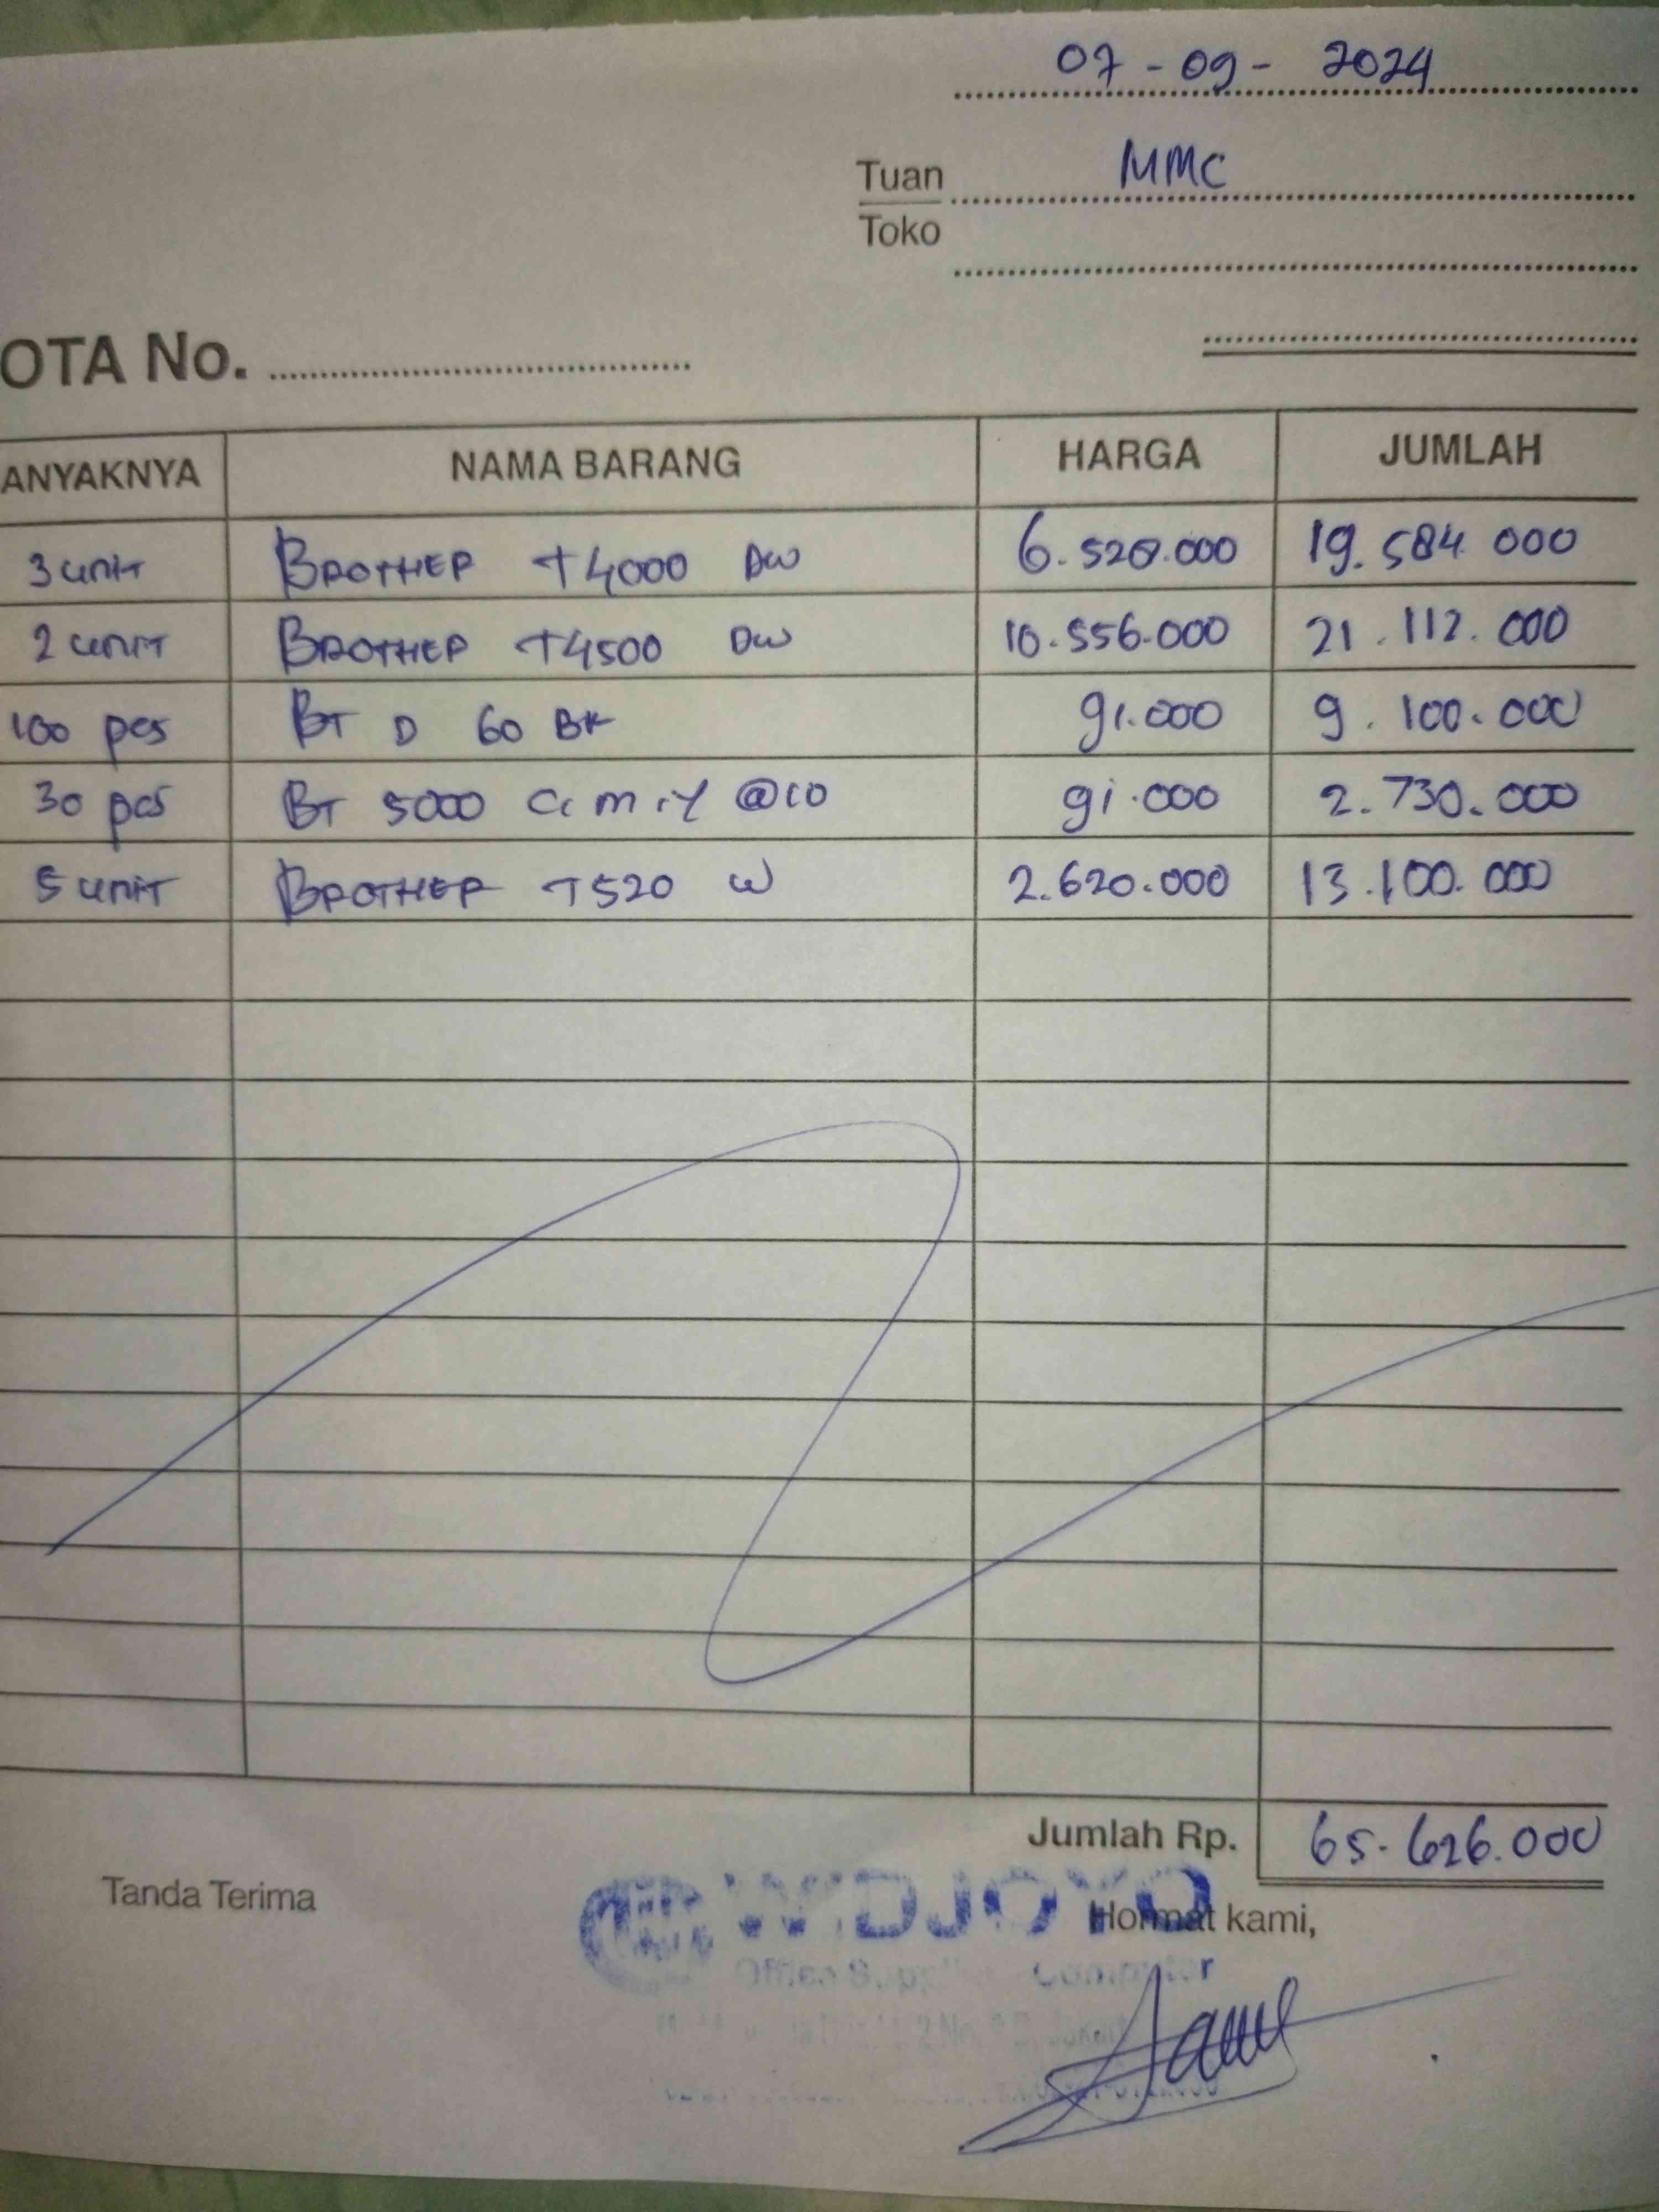 07 - 09 - 2024
Tuan MMC
Toko
OTA No.
ANYAKNYA NAMA BARANG HARGA JUMLAH
3 unit BROTHER T4000 DW 6.528.000 19.584.000
2 unit BROTHER T4500 DW 10.556.000 21.112.000
100 pcs BT D 60 BK 91.000 9.100.000
30 pcs BT 5000 C, m, Y @10 91.000 2.730.000
5 unit BROTHER T520 W 2.620.000 13.100.000
Jumlah Rp. 65.626.000
Tanda Terima
WIDJOYO
Hormat kami,
Office Computer